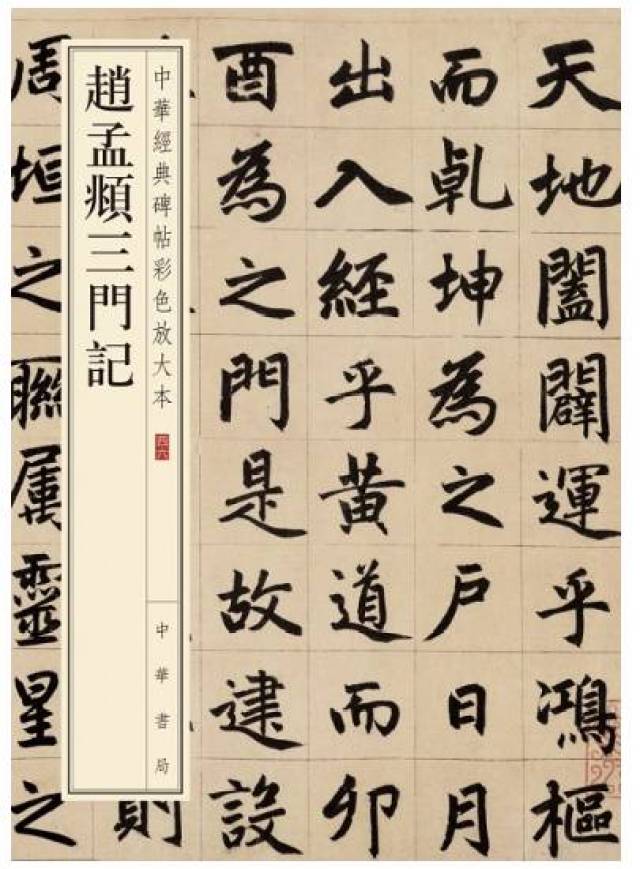 天地闔闢運乎鴻樞
而乹坤為之戶日月
出入經乎黃道而卯
酉為之門是故建設
則
中華經典碑帖彩色放大本
四六
中華書局
趙孟頫三門記
周垣之聯属靈星之